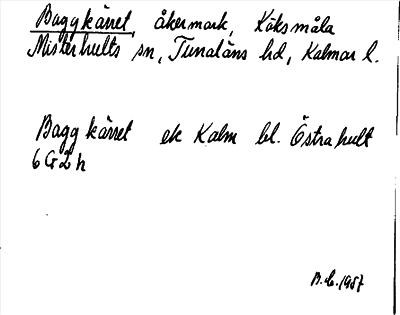 Baggkärret, åkermark, Köksmåla
Misterhults sn, Tunaläns hd, Kalmar l.
Baggkärret ek Kalm bl. Östrahult
6G2h
1957